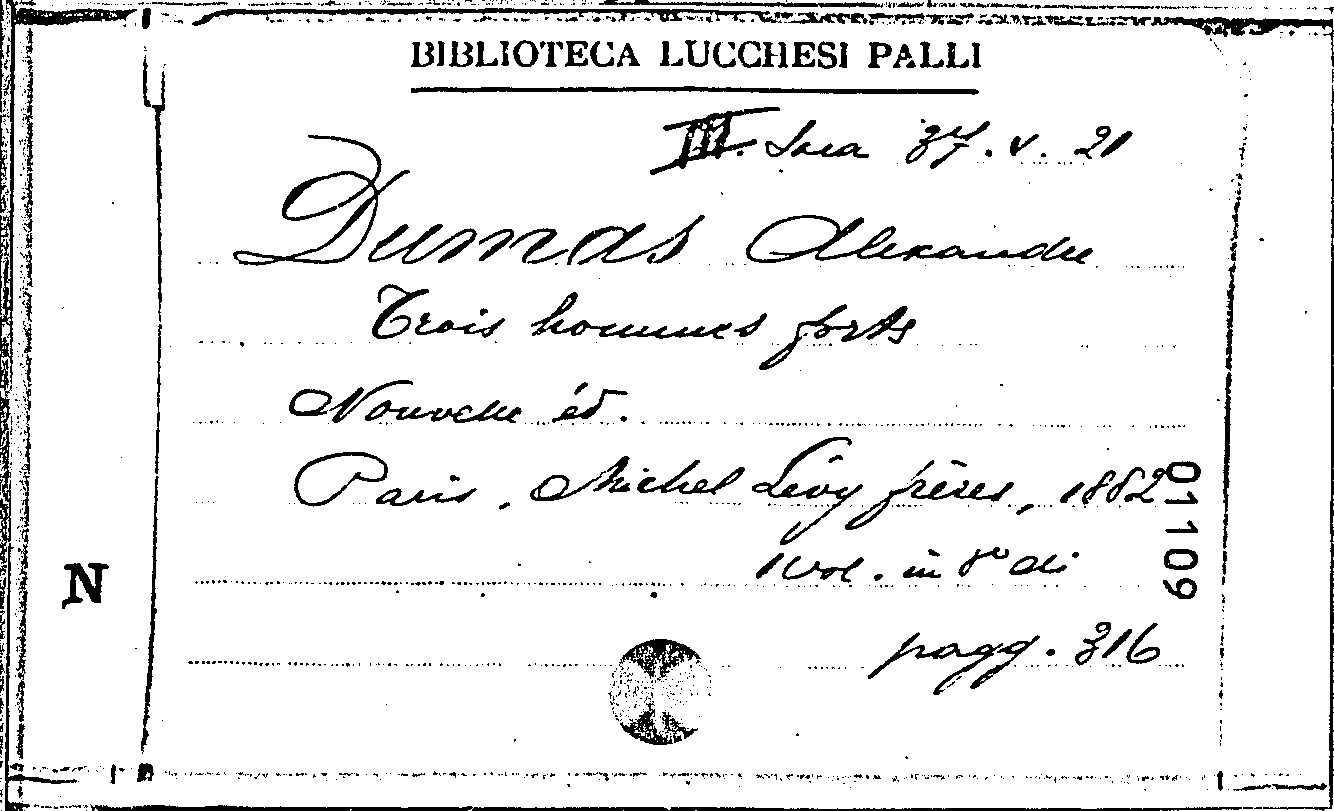 BIBLIOTECA LUCCHESI PALLI
III. Sala 37. v. 21
Dumas Alexandre
Trois hommes forts
Nouvelle éd.
Paris, Michel Lévy frères, 1862
1 vol. in 8º di
pagg. 316
N
01109